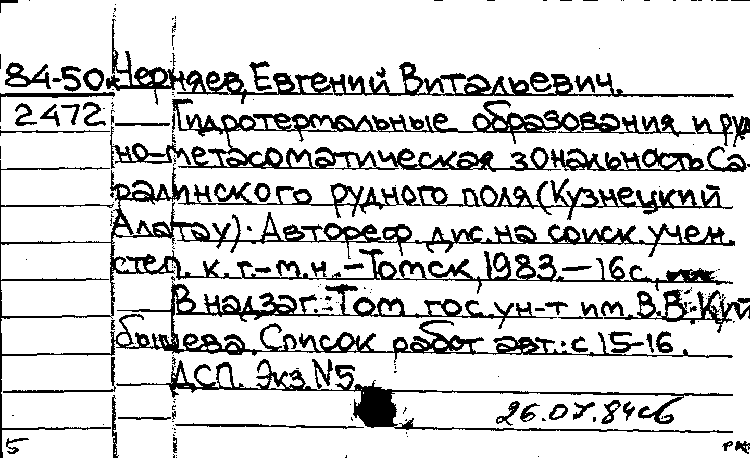 84-50к Черняев, Евгений Витальевич.
2472 Гидротермальные образования и руд
но-метасоматическая зональность Са-
ралинского рудного поля (Кузнецкий
Алатау). Автореф. дис. на соиск. учен.
степ. к. г.-м. н. - Томск, 1983. - 16 с.
В надзаг.: Том. гос. ун-т им. В.В. Куй
бышева. Список работ авт.: с. 15-16.
ДСП. Экз. N5.
26.07.84
5